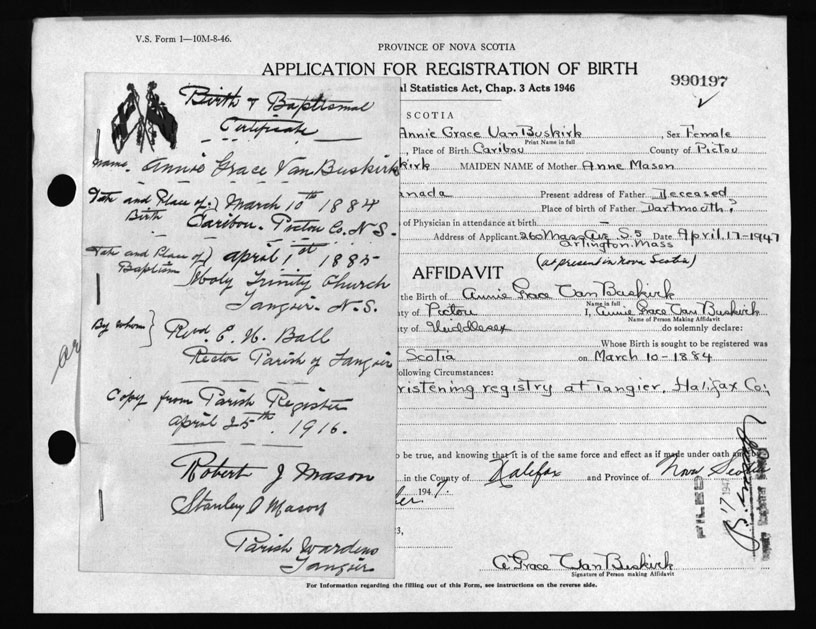 V.S. Form 1—10M-8-46.
PROVINCE OF NOVA SCOTIA
APPLICATION FOR REGISTRATION OF BIRTH
990197
al Statistics Act, Chap. 3 Acts 1946
SCOTIA
Annie Grace Van Buskirk, Sex Female
Print Name in full
, Place of Birth Caribou County of Pictou
kirk MAIDEN NAME of Mother Anne Mason
anada Present address of Father Deceased
Place of birth of Father Dartmouth?
of Physician in attendance at birth –
Address of Applicant 260 Mass Ave S.5 Date April 17-1947
Arlington, Mass
(at present in Nova Scotia)
AFFIDAVIT
the Birth of Annie Grace Van Buskirk
Name in full
of Pictou I, Annie Grace Van Buskirk
Name of Person Making Affidavit
ty of Middlesex do solemnly declare:
Whose Birth is sought to be registered was
Scotia on March 10-1884
ollowing Circumstances:
ristening registry at Tangier, Halifax Co;
to be true, and knowing that it is of the same force and effect as if made under oath and by
in the County of Halifax and Province of Nova Scotia
ber 1947.
23,
FILED
A Grace Van Buskirk
Signature of Person making Affidavit
For Information regarding the filling out of this Form, see instructions on the reverse side.
Birth & Baptismal
Certificate
Name. Annie Grace Van Buskirk
Date and Place of } March 10th 1884
Birth Caribou. Pictou Co. N.S.
Date and Place of } April 1st 1885
Baptism Holy Trinity Church
Tangier. N.S.
By whom } Revd. E. H. Ball
Rector Parish of Tangier
Copy from Parish Register
April 25th. 1916.
Robert J Mason
Stanley O Mason
Parish Wardens
Tangier